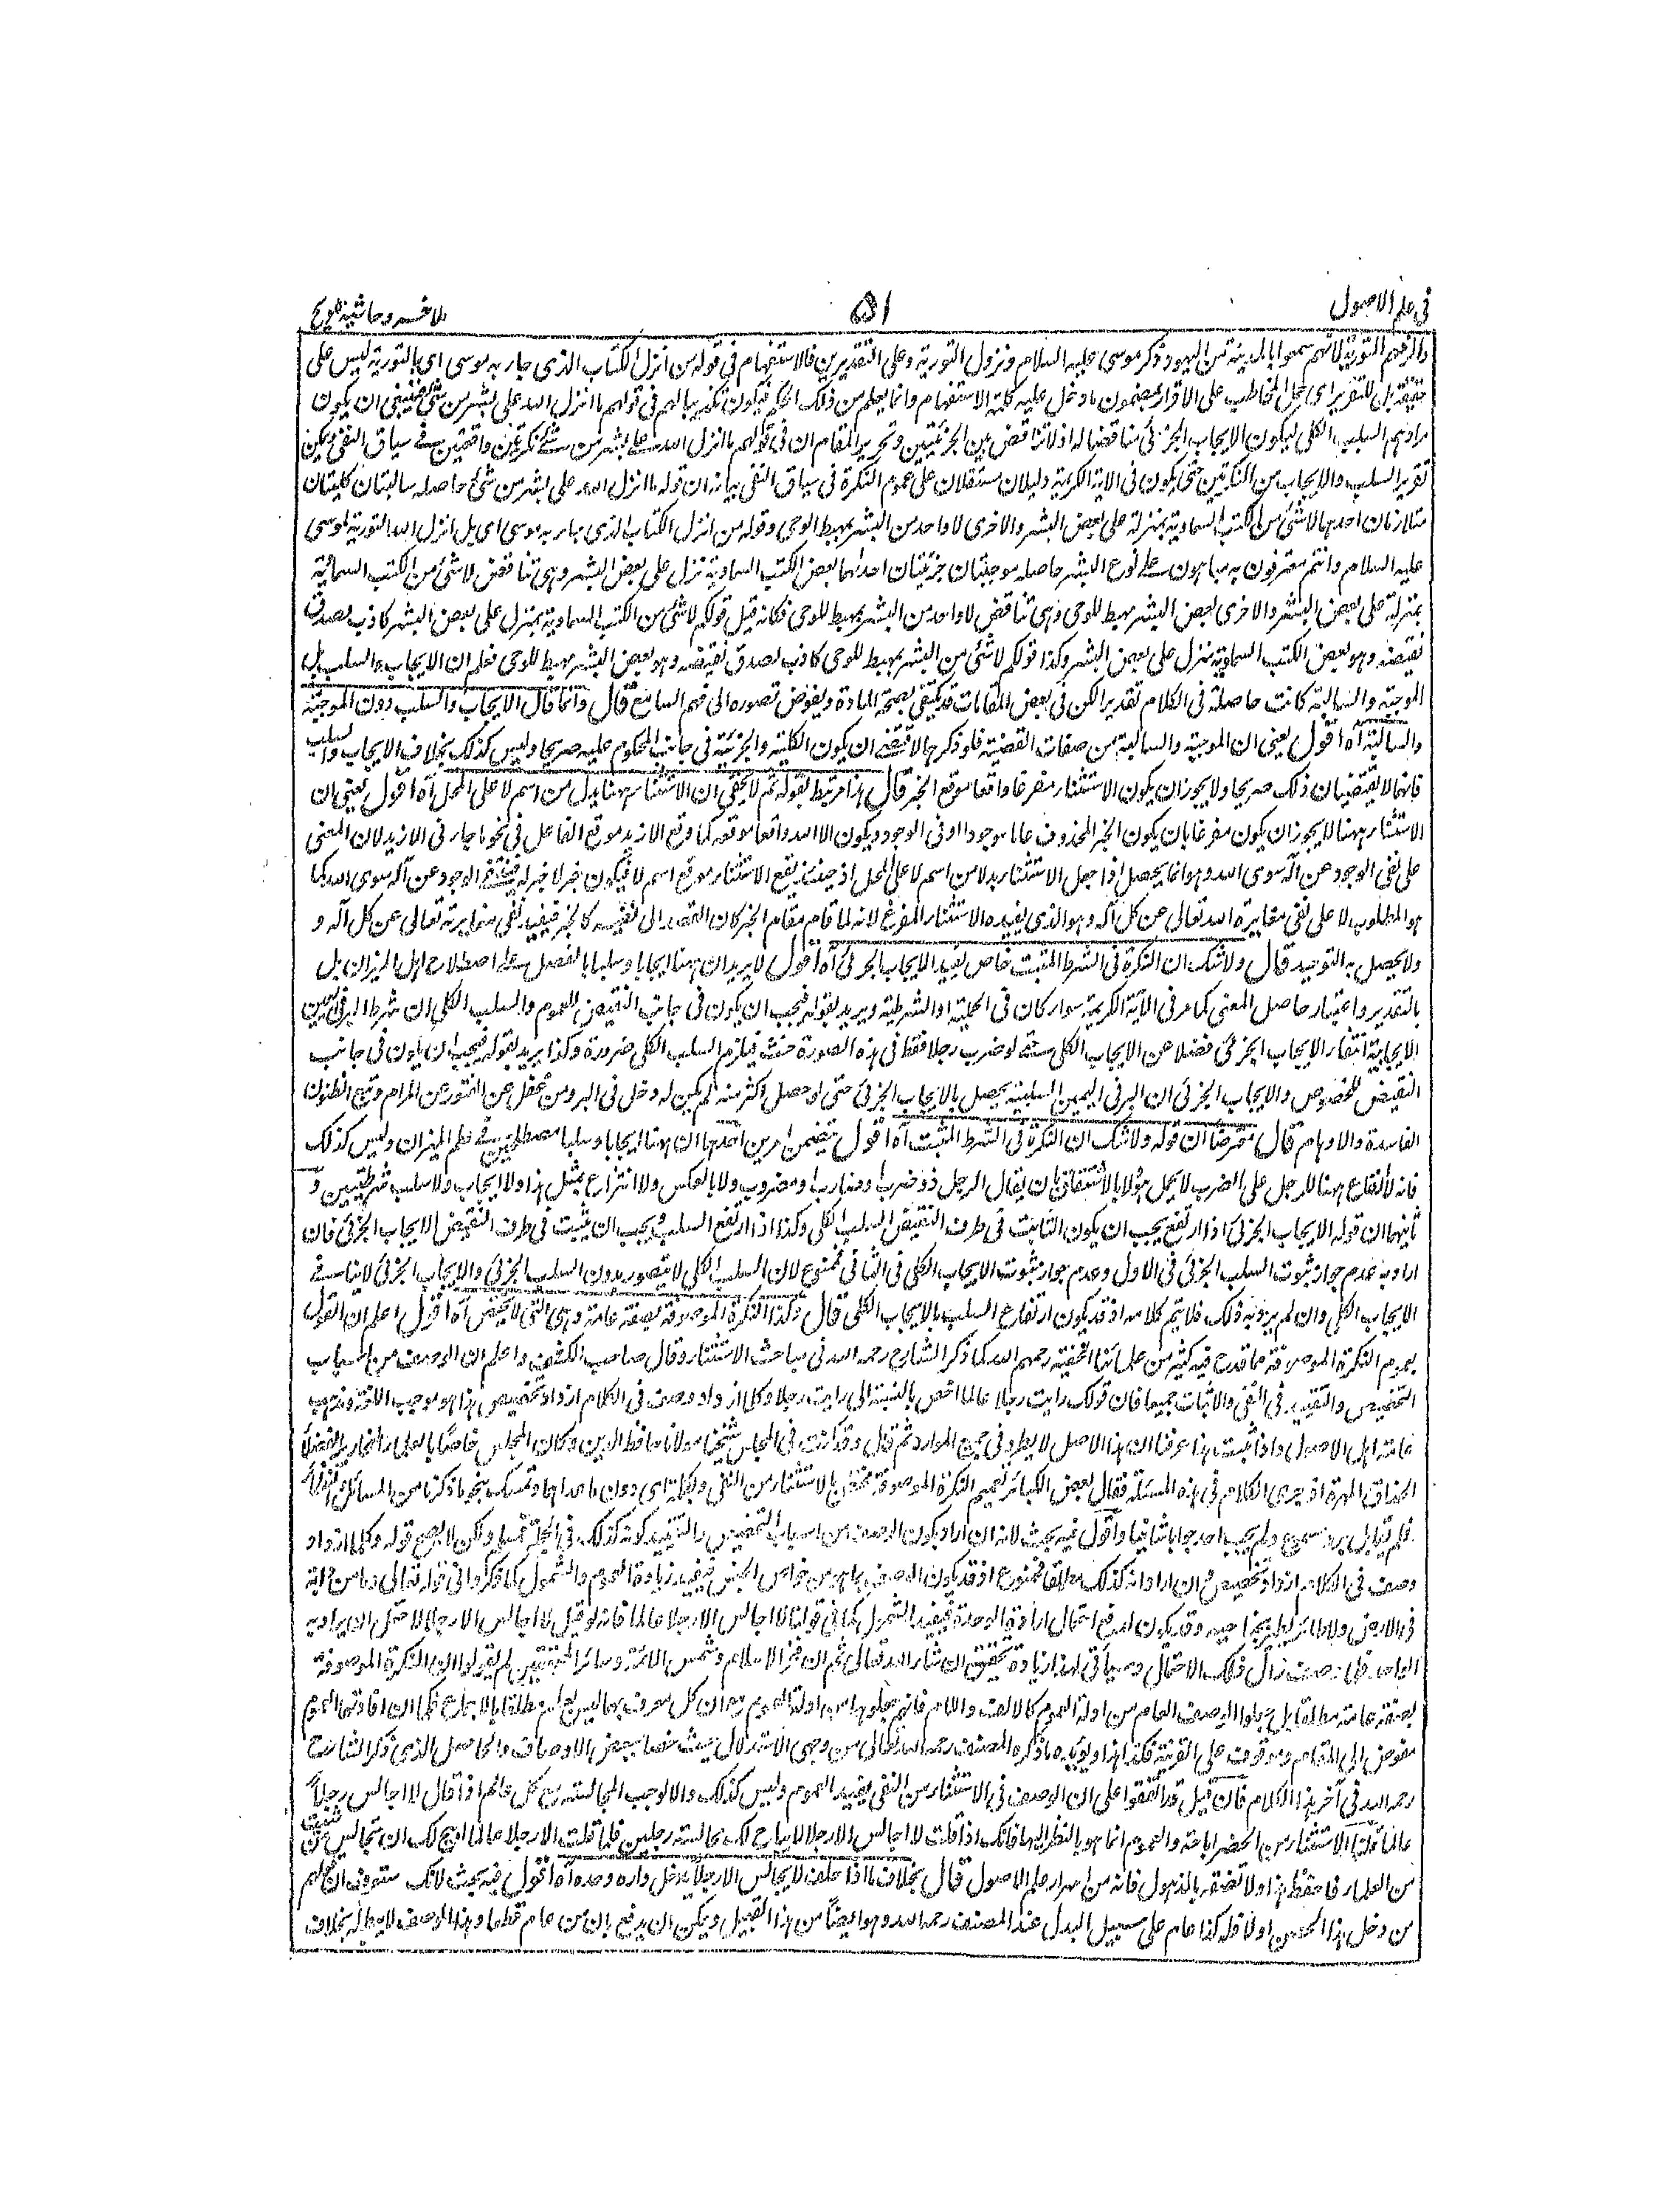 في علم الاصول
٥١
ملا خسرو حاشية تلويح
والزمهم التورية لانهم سمعوا بالمدينة من اليهود ذكر موسى عليه السلام ونزول التورية وعلى التقديرين فالاستفهام في قوله من انزل الكتاب الذي جاء به موسى اي بالتورية ليس على
حقيقته بل للتقرير اي حمل المخاطب على الاقرار بمضمون ما دخل عليه كلمة الاستفهام وانما يعلم من ذلك الحكم فيكون تكذيبا لهم في قولهم ما انزل الله على بشر من شئ فينبغي ان يكون
مرادهم السلب الكلي ليكون الايجاب الجزئي مناقضا له اذ لا تناقض بين الجزئيتين وتحرير المقام ان في قولهم ما انزل الله على بشر من شئ نكرتين واقعتين في سياق النفي ويمكن
تقرير السلب والايجاب من النكرتين حتى يكون في الاية الكريمة دليلان مستقلان على عموم النكرة في سياق النفي بيانه ان قوله ما انزل الله على بشر من شئ حاصله سالبتان كليتان
متلازمتان احدهما لا شئ من الكتب السماوية بمنزلة على بعض البشر والاخرى لا واحد من البشر بمهبط الوحي وقوله من انزل الكتاب الذي جاء به موسى اي بل انزل الله التورية لموسى
عليه السلام وانتم معترفون به مباهون على نوع البشر حاصله موجبتان جزئيتان احدهما بعض الكتب السماوية نزل على بعض البشر وهي تناقض لا شئ من الكتب السماوية
بمنزلة على بعض البشر والاخرى بعض البشر مهبط للوحي وهي تناقض لا واحد من البشر بمهبط للوحي فكانه قيل قولكم لا شئ من الكتب السماوية بمنزل على بعض البشر كاذب لصدق
نقيضه وهو بعض الكتب السماوية منزل على بعض البشر وكذا قولكم لا شئ من البشر بمهبط للوحي كاذب لصدق نقيضه وهو بعض البشر مهبط للوحي فعلم ان الايجاب والسلب بل
الموجبة والسالبة كانت حاصلة في الكلام تقديرا لكن في بعض المقامات قد يكتفي بصحة المادة ويفوض تصوره الى فهم السامع قال وانما قال الايجاب والسلب دون الموجبة
والسالبة آه اقول يعني ان الموجبة والسالبة من صفات القضية فلو ذكرهما لاقتضى ان يكون الكلية والجزئية في جانب المحكوم عليه صريحا وليس كذلك بخلاف الايجاب والسلب
فانهما لا يقتضيان ذلك صريحا ولا يجوز ان يكون الاستثناء مفرغا واقعا موقع الخبر قال هذا مرتبط بقوله ثم لا يخفى ان الاستثناء ههنا بدل من اسم لا على المحل آه اقول يعني ان
الاستثناء ههنا لا يجوز ان يكون مفرغا بان يكون الخبر المحذوف عاما موجودا او في الوجود ويكون الا الله واقعا موقعه كما وقع الا زيد موقع الفاعل في نحو ما جاءني الا زيد لان المعنى
على نفي الوجود عن آله سوى الله وهو انما يحصل اذا جعل الاستثناء بدلا من اسم لا على المحل اذ حينئذ يقع الاستثناء موقع اسم لا فيكون خبر لا خبر له فينتفي الوجود عن آله سوى الله كما
هو المطلوب لا على نفي مغايرة الله تعالى عن كل آله وهو الذي يفيده الاستثناء المفرغ لانه لما قام مقام الخبر كان القصد الى نفيه كالخبر فيفيد نفي مغايرته تعالى عن كل آله و
ولا يحصل به التوحيد قال ولا شك ان النكرة في الشرط المثبت خاص يفيد الايجاب الجزئي آه اقول لا يريد ان ههنا ايجابا وسلبا بالفعل على اصطلاح اهل الميزان بل
بالتقدير واعتبار حاصل المعنى كما مر في الآية الكريمة سواء كان في الحملية او الشرطية ويريد بقوله فيجب ان يكون في جانب النقيض للعموم والسلب الكلي ان شرط البر في اليمين
الايجابية انتفاء الايجاب الجزئي فضلا عن الايجاب الكلي حتى لو ضرب رجلا فقط في هذه الصورة حنث فيلزم السلب الكلي ضرورة وكذا يريد بقوله فيجب ان يكون في جانب
النقيض للخصوص والايجاب الجزئي ان البر في اليمين السلبية يحصل بالايجاب الجزئي حتى لو حصل اكثر منه لم يكن له دخل في البر ومن غفل عن العثور عن المرام وتبع الظنون
الفاسدة والاوهام قال معترضا ان قوله ولا شك ان النكرة في الشرط المثبت آه اقول يتضمن امرين احدهما ان ههنا ايجابا وسلبا مصطلحين في علم الميزان وليس كذلك
فانه لا ايقاع ههنا للرجل على الضرب لا بحمل هو ولا بالاشتقاق بان يقال الرجل ذو ضرب او ضارب او مضروب ولا بالعكس ولا انتزاع بمثل هذا ولا ايجاب ولا سلب شرطيين و
ثانيهما ان قوله الايجاب الجزئي اذا ارتفع يجب ان يكون الثابت في طرف النقيض السلب الكلي وكذا اذا ارتفع السلب يجب ان يثبت في طرف النقيض الايجاب الجزئي فان
اراد به عدم جواز ثبوت السلب الجزئي في الاول وعدم جواز ثبوت الايجاب الكلي في الثاني فممنوع لان السلب الكلي لا يتصور بدون السلب الجزئي والايجاب الجزئي لا ينافي
الايجاب الكلي وان لم يرد به ذلك فلا يتم كلامه اذ قد يكون ارتفاع السلب بالايجاب الكلي قال وكذا النكرة الموصوفة بصفة عامة وهي التي لا تخص آه اقول اعلم ان القول
بعموم النكرة الموصوفة مما قدح فيه كثير من علمائنا الحنفية رحمهم الله كما ذكر الشارح رحمه الله في مباحث الاستثناء وقال صاحب الكشف واعلم ان الوصف من اسباب
التخصيص والتقييد في النفي والاثبات جميعا فان قولك رايت رجلا عالما اخص بالنسبة الى رايت رجلا وكلما ازداد وصف في الكلام ازداد تخصيص هذا هو موجب اللغة ومذهب
عامة اهل الاصول واذا ثبت هذا عرفنا ان هذا الاصل لا يطرد في جميع الموارد ثم قال وقد كنت في مجلس شيخنا مولانا حافظ الدين وكان المجلس خاصا بالعلماء النحارير الفضلاء
الحذاق المهرة اذ جرى الكلام في هذه المسئلة فقال بعض الكبار تعميم النكرة الموصوفة مختص بالاستثناء من النفي وبكلمة اي دون ما عداها وتمسك بنحو ما ذكرنا من المسائل
فلم يقابل برد مسموع ولم يجب احد جوابا شافيا واقول فيه بحث لانه ان اراد بكون الوصف من اسباب التخصيص والتقييد كونه كذلك في الجملة فمسلم ولكن لا يصح قوله وكلما ازداد
وصف في الكلام ازداد تخصيص وان اراد انه كذلك مطلقا فممنوع اذ قد يكون الوصف بما هو من خواص الجنس فيفيد زيادة العموم والشمول كما ذكروا في قوله تعالى وما من دابة
في الارض ولا طائر يطير بجناحيه وقد يكون لدفع احتمال ارادة الوحدة فيفيد الشمول كما في قولنا لا اجالس الا رجلا عالما فانه لو قيل لا اجالس الا رجلا احتمل ان يراد به
الواحد فلما وصف زال ذلك الاحتمال وسيأتي لهذا زيادة تحقيق ان شاء الله تعالى ثم ان فخر الاسلام وشمس الائمة وسائر المحققين لم يقولوا ان النكرة الموصوفة
بصفة عامة مطلقا بل جعلوا الوصف العام من ادلة العموم كالالف واللام فانهم جعلوها من ادلة العموم مع ان كل معرف بهما ليس بعام مطلقا بالاجماع فكما ان افادتهما العموم
مفوض الى المقام وموقوف على القرينة فكذا هذا ويؤيده ما ذكره المصنف رحمه الله تعالى من وجهي الاستدلال حيث خصا ببعض الاوصاف والحاصل الذي ذكر الشارح
رحمه الله في آخر هذا الكلام فان قيل قد اتفقوا على ان الوصف في الاستثناء من النفي يفيد العموم وليس كذلك والا لوجب المجالسة مع كل عالم اذا قال لا اجالس رجلا
عالما قلنا الاستثناء من الحظر اباحة والعموم انما هو بالنظر اليها فانك اذا قلت لا اجالس الا رجلا لا يباح لك مجالسة رجلين فلما قلت الا رجلا عالما ابيح لك ان تجالس من شئت
من العلماء فاحفظ هذا ولا تضنه بالذهول فانه من اسرار علم الاصول قال بخلاف ما اذا حلف لا يجالس الا رجلا يدخل داره وحده آه اقول فيه بحث لانك ستعرف ان قولهم
من دخل هذا الحصن اولا فله كذا عام على سبيل البدل عند المصنف رحمه الله وهو ايضا من هذا القبيل ويمكن ان يدفع بان من عام قطعا وهذا الوصف لا يبطله بخلاف